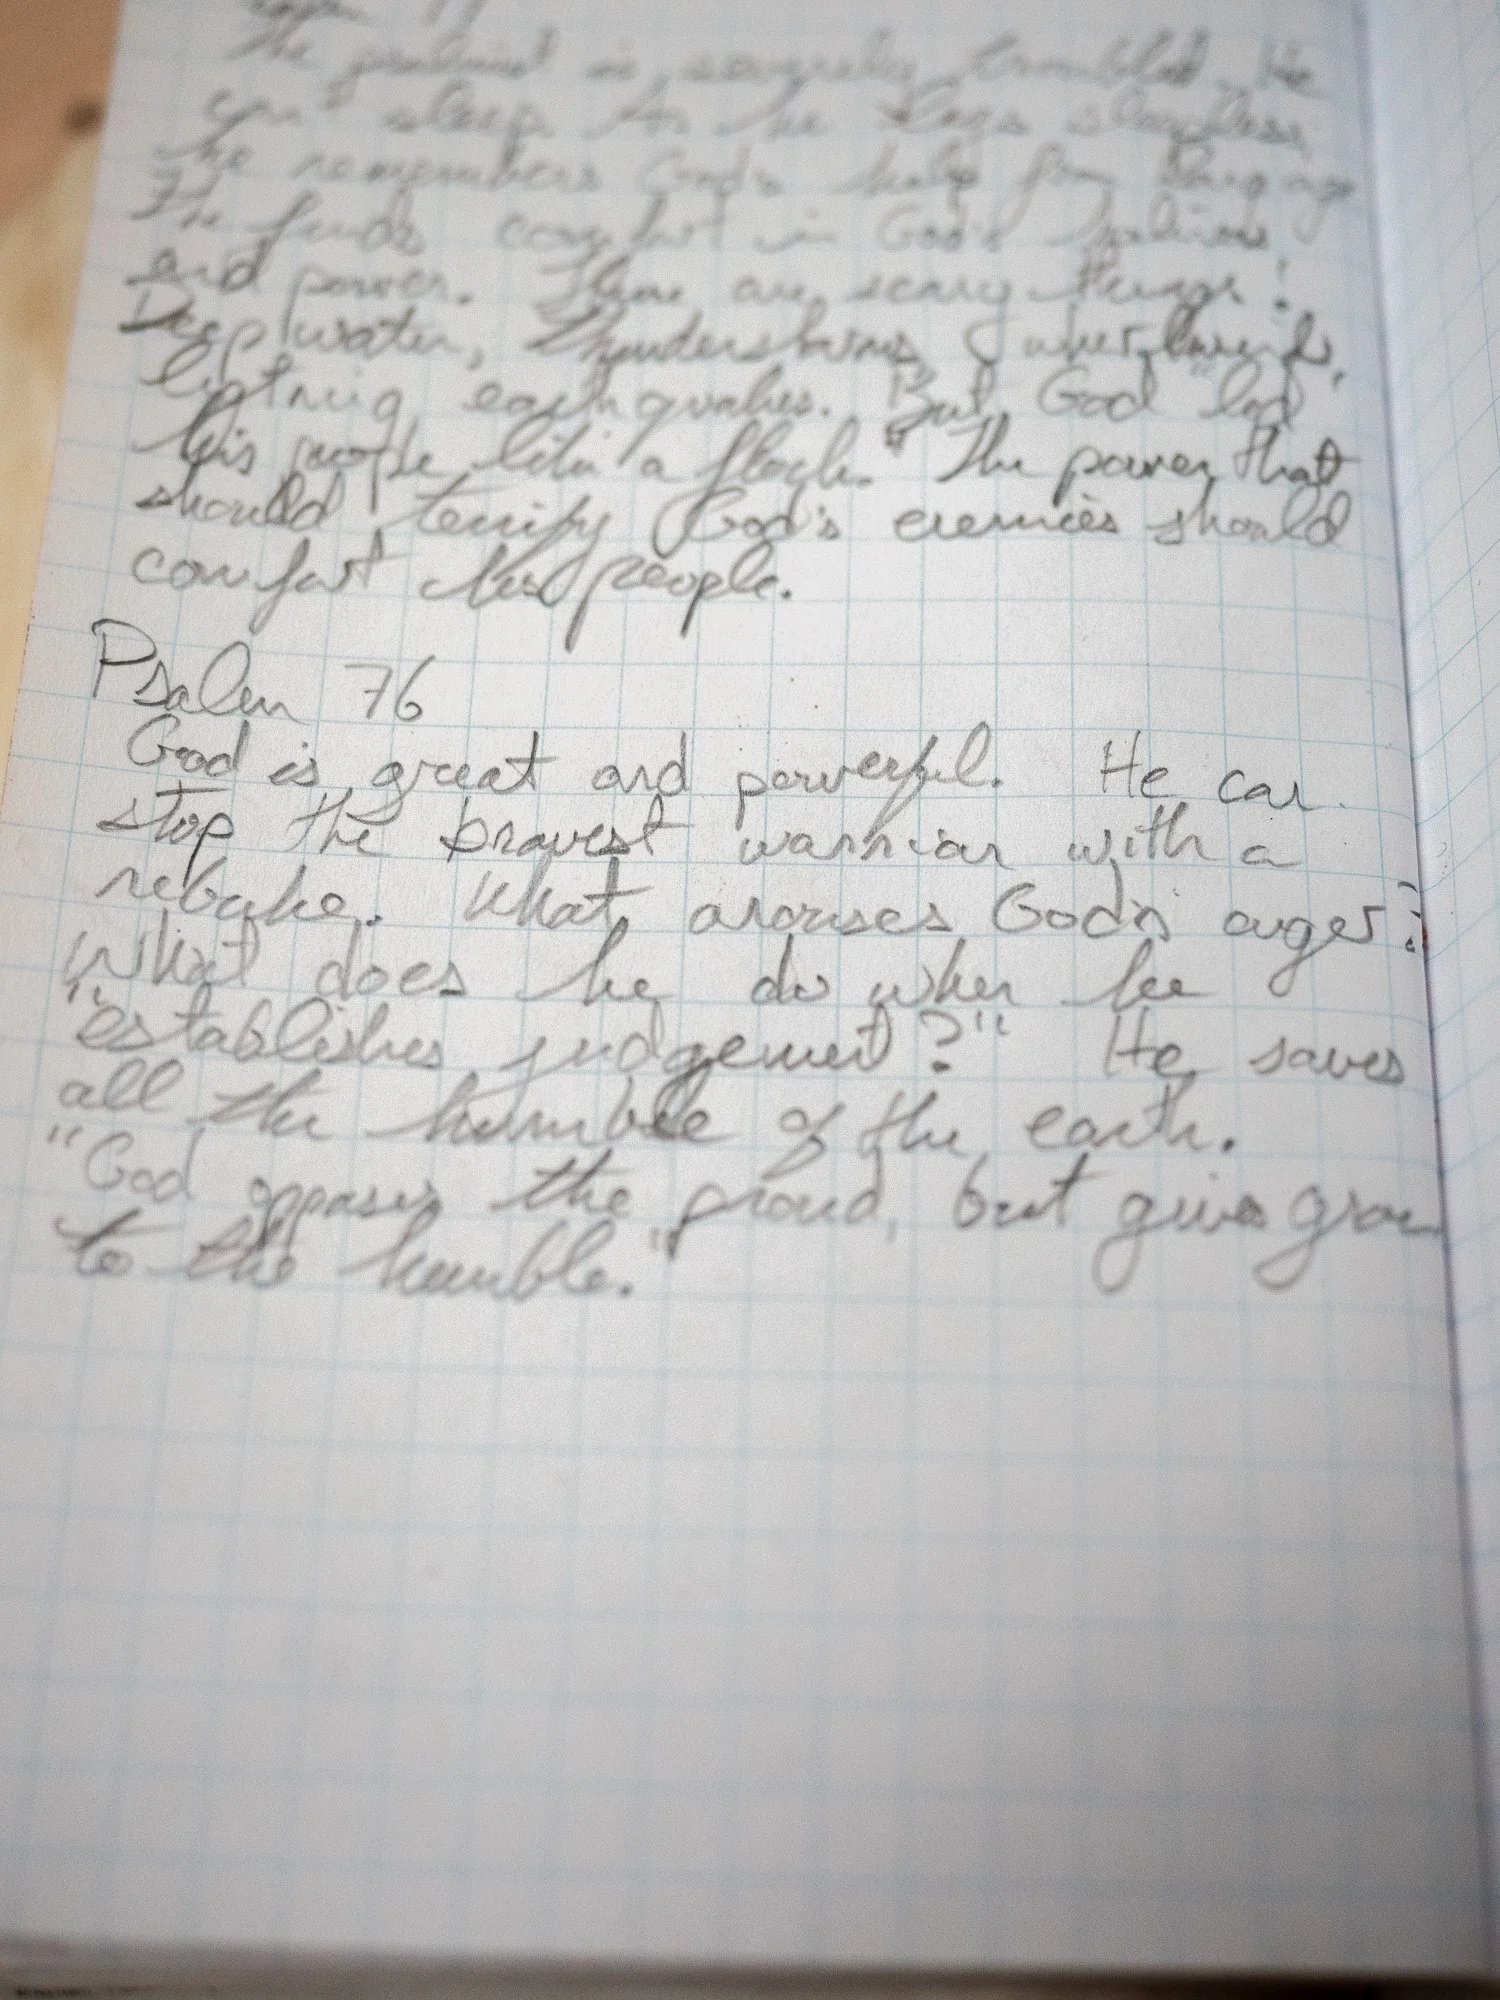 The psalmist is severely troubled. He
can't sleep. As he lays sleepless,
he remembers God's help from long ago
He finds comfort in God's holiness
and power. There are scary things!
Deep water, thunderstorms, whirlwinds,
lightnig, earthquakes. But God "led
his people like a flock." The power that
should terrify God's enemies should
comfort His people.
Psalm 76
God is great and powerful. He can
stop the bravest warrior with a
rebuke. What arouses God's anger?
What does he do when he
"establishes judgement?" He saves
all the humble of the earth.
"God opposes the proud, but gives grace
to the humble."